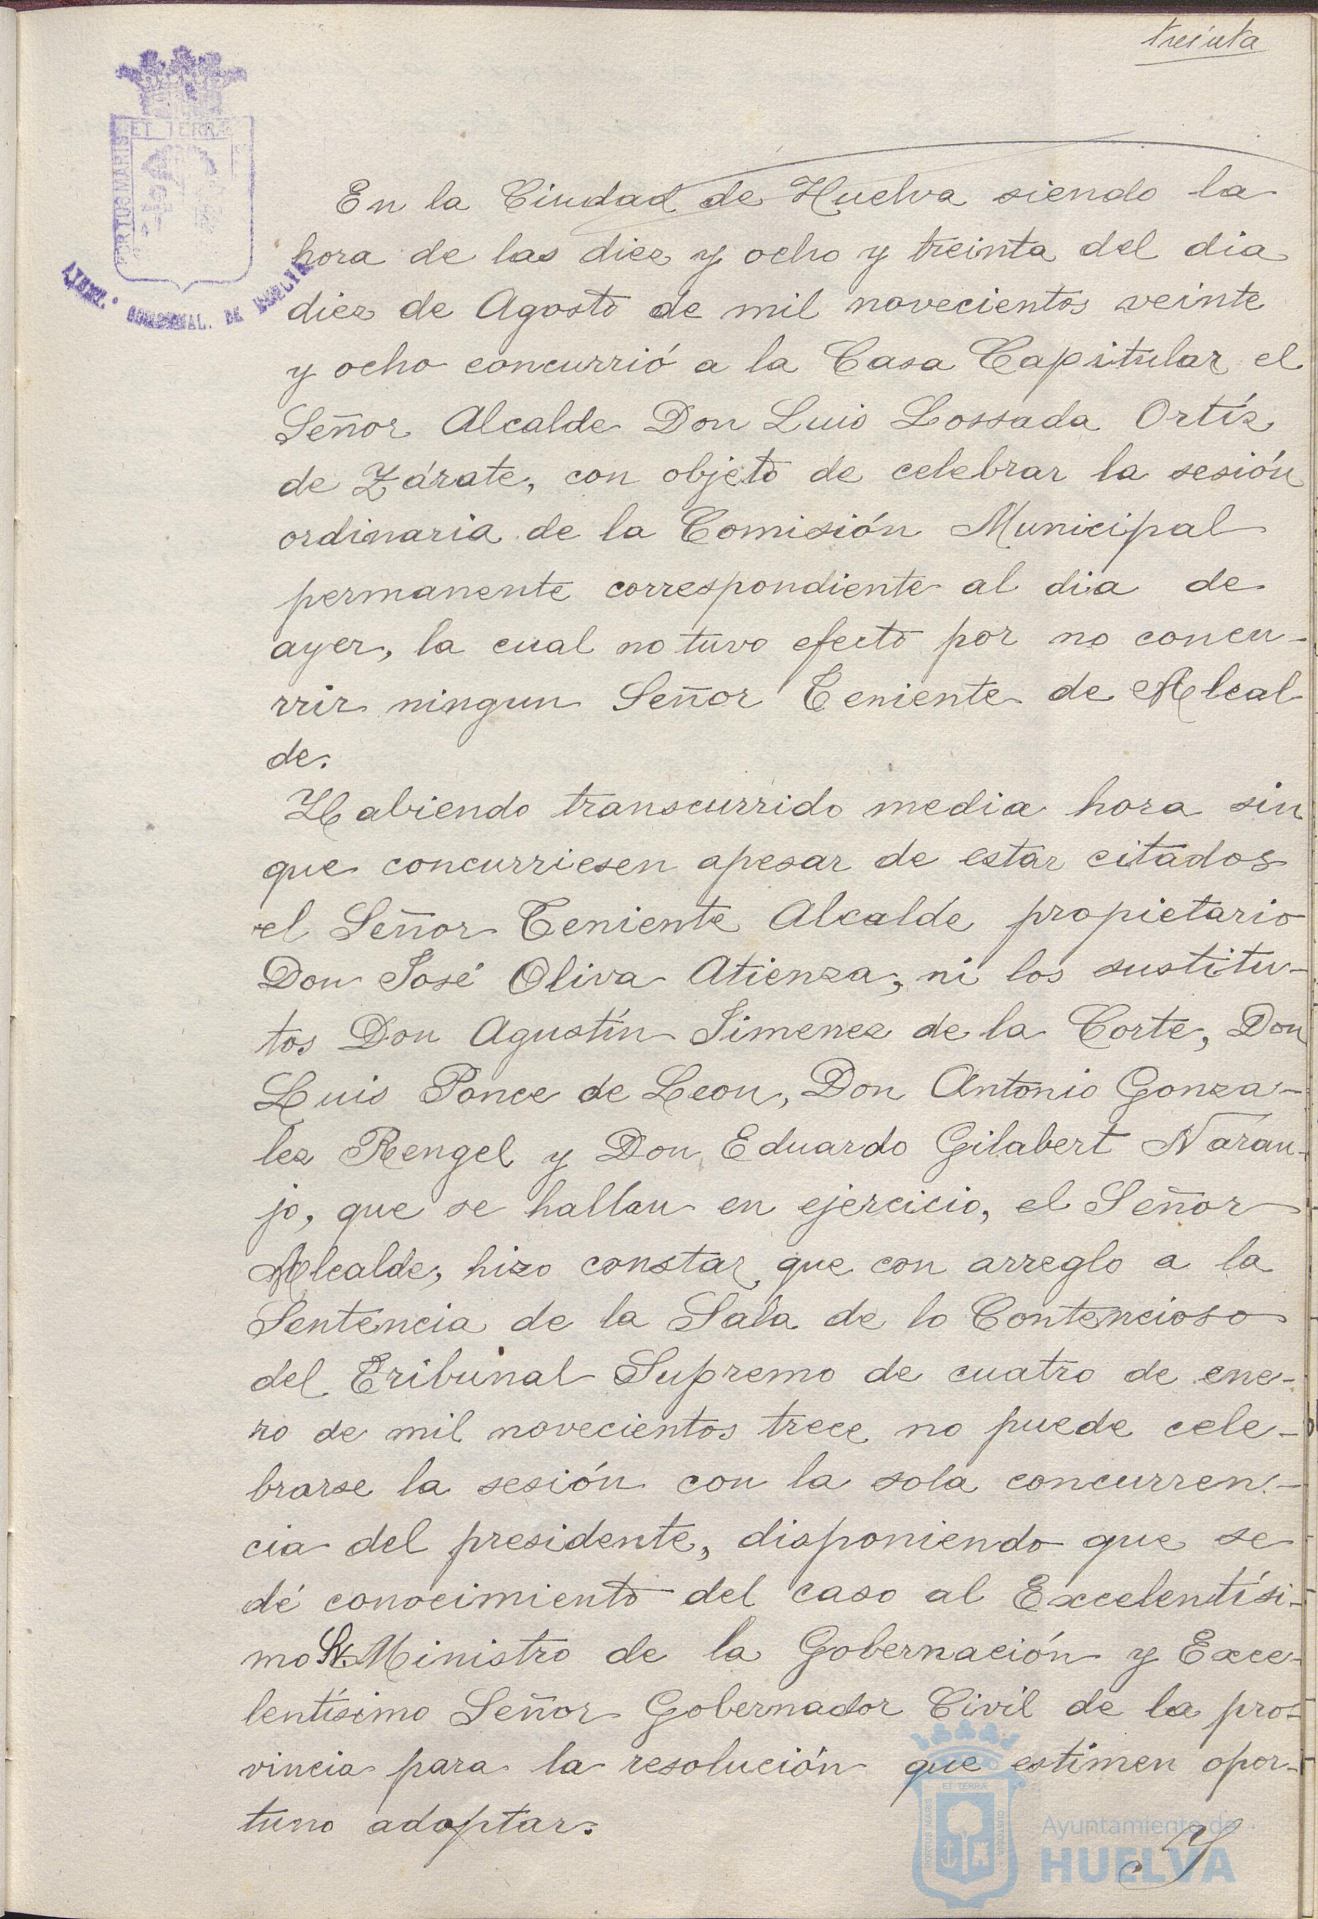 treinta
ET TERRÆ
PORTUS MARIS
AYUNT.
DE HUELVA
En la Ciudad de Huelva siendo la
hora de las diez y ocho y treinta del dia
diez de Agosto de mil novecientos veinte
y ocho concurrió a la Casa Capitular el
Señor Alcalde Don Luis Lossada Ortíz
de Zárate, con objeto de celebrar la sesión
ordinaria de la Comisión Municipal
permanente correspondiente al dia de
ayer, la cual no tuvo efecto por no concu-
rrir ningun Señor Teniente de Alcal
de.
Habiendo transcurrido media hora sin
que concurriesen apesar de estar citados
el Señor Teniente Alcalde propietario
Don José Oliva Atienza, ni los sustitu-
tos Don Agustín Jimenez de la Corte, Don
Luis Ponce de Leon, Don Antonio Gonza-
lez Rengel y Don Eduardo Gilabert Naran-
jo, que se hallan en ejercicio, el Señor
Alcalde, hizo constar que con arreglo a la
Sentencia de la Sala de lo Contencioso
del Tribunal Supremo de cuatro de ene-
ro de mil novecientos trece no puede cele-
brarse la sesión con la sola concurren-
cia del presidente, disponiendo que se
dé conocimiento del caso al Excelentísi-
mo Sr. Ministro de la Gobernación y Exce-
lentísimo Señor Gobernador Civil de la pro-
vincia para la resolución que estimen opor-
tuno adoptar.
Y
ET TERRÆ
Ayuntamiento de
HUELVA